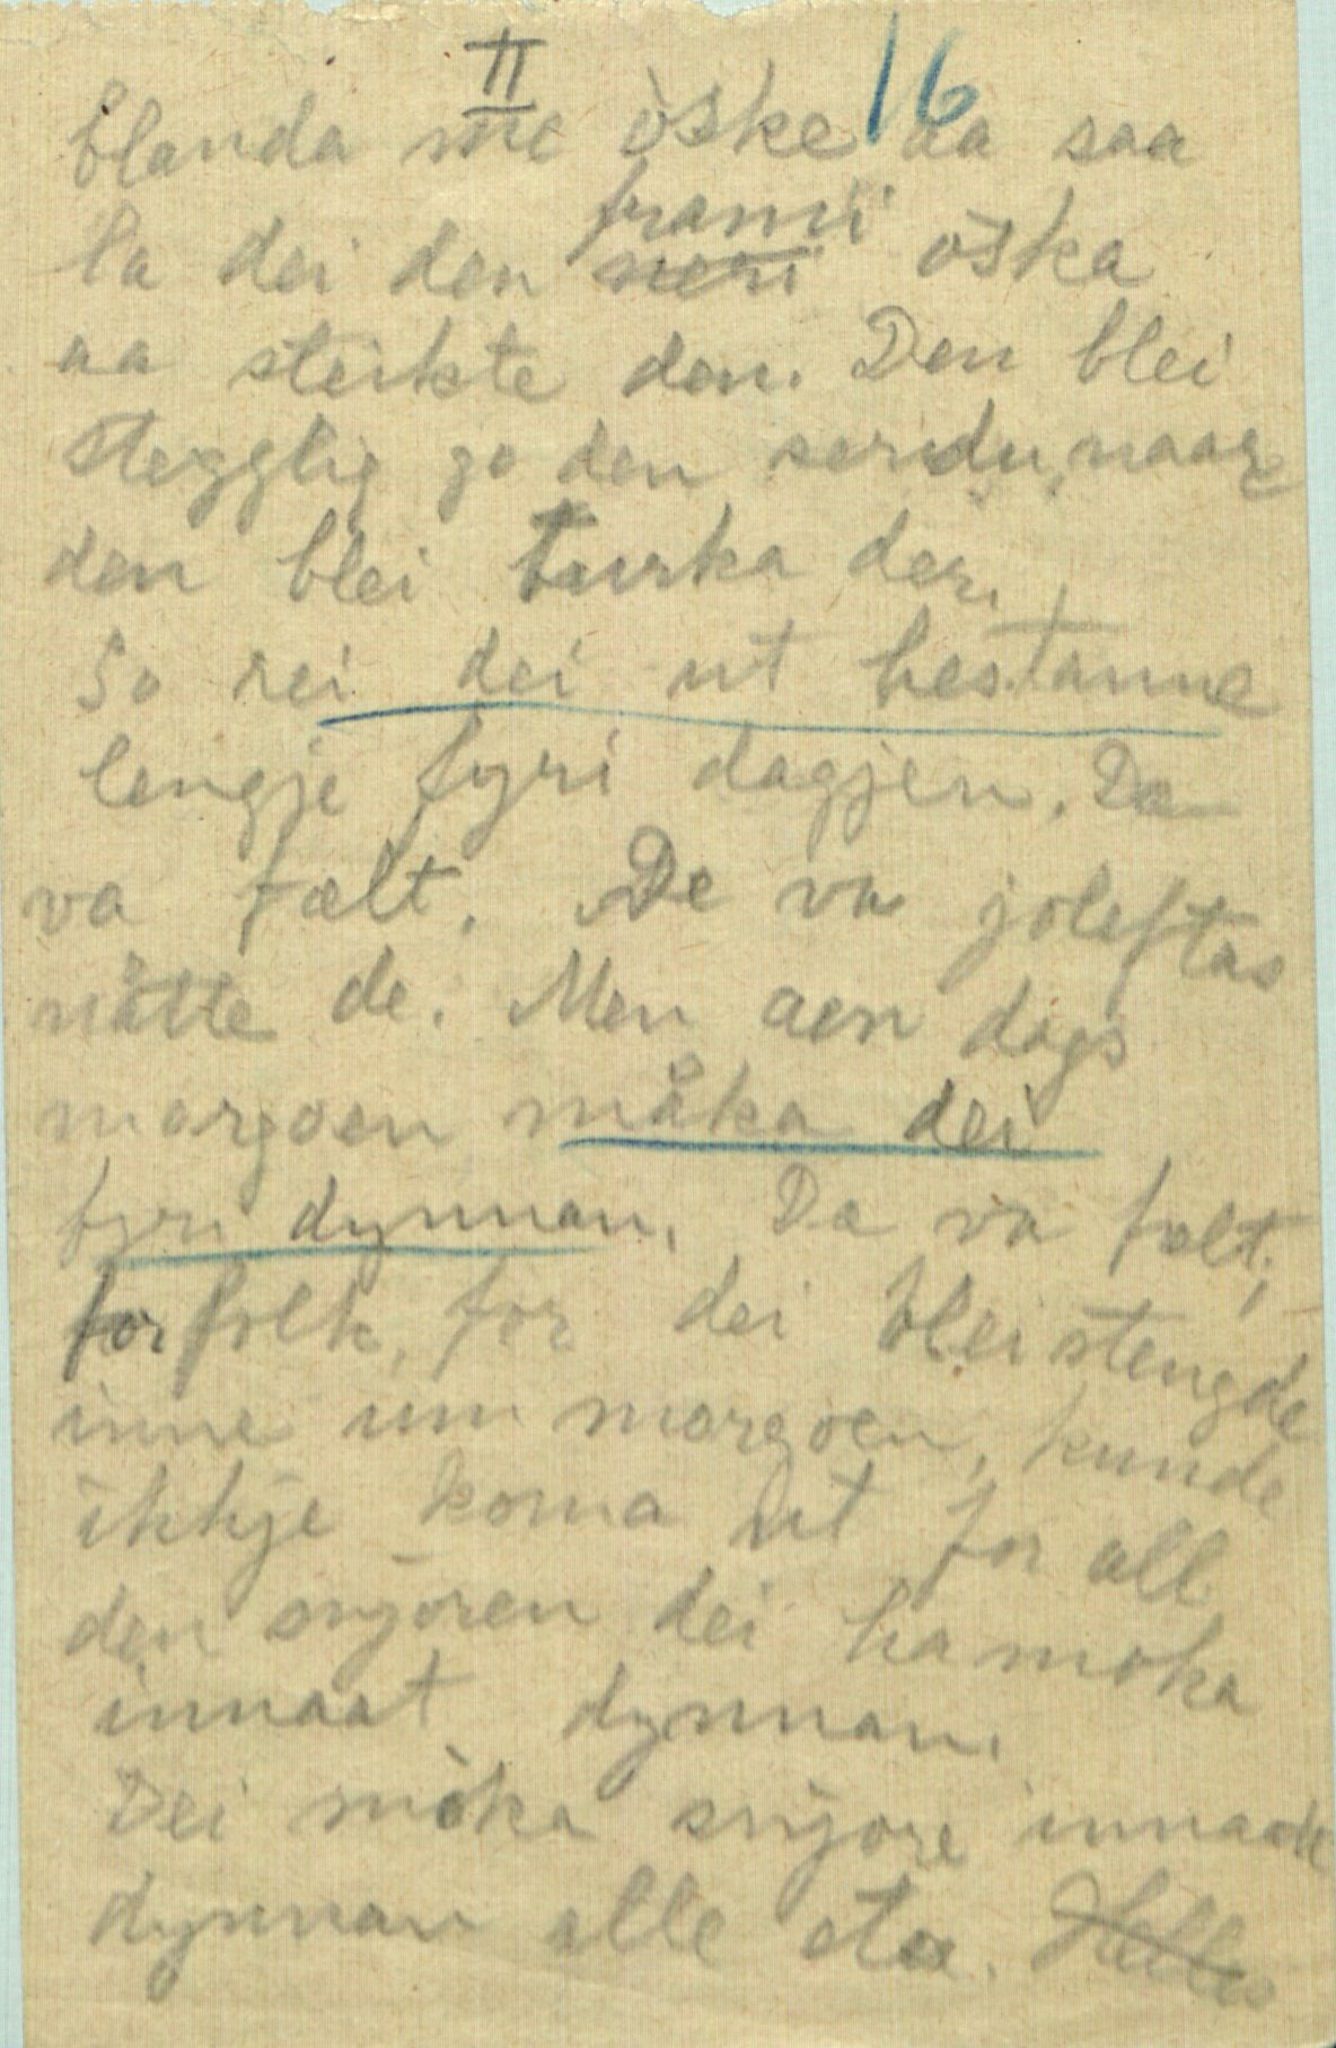 II 16
blanda me òske aa saa
la dei den frami òska
neri
aa steikte den. Den blei
steggleg go den sendu, naar
den blei turka der.
So rei dei ut hestanne
lengje fyri dagjen. Dæ
va fælt. De va joleftas
nåtte de. Men aen dags
morgoen måka dei
fyri dynnan. Dæ va fælt,
for folk, for dei blei stengde
inne um morgoen, kunde
ikkje koma ut for all
den snjoren dei ha moka
innaat dynnan.
Dei mòka snjore innaat
dynnan alle sta.